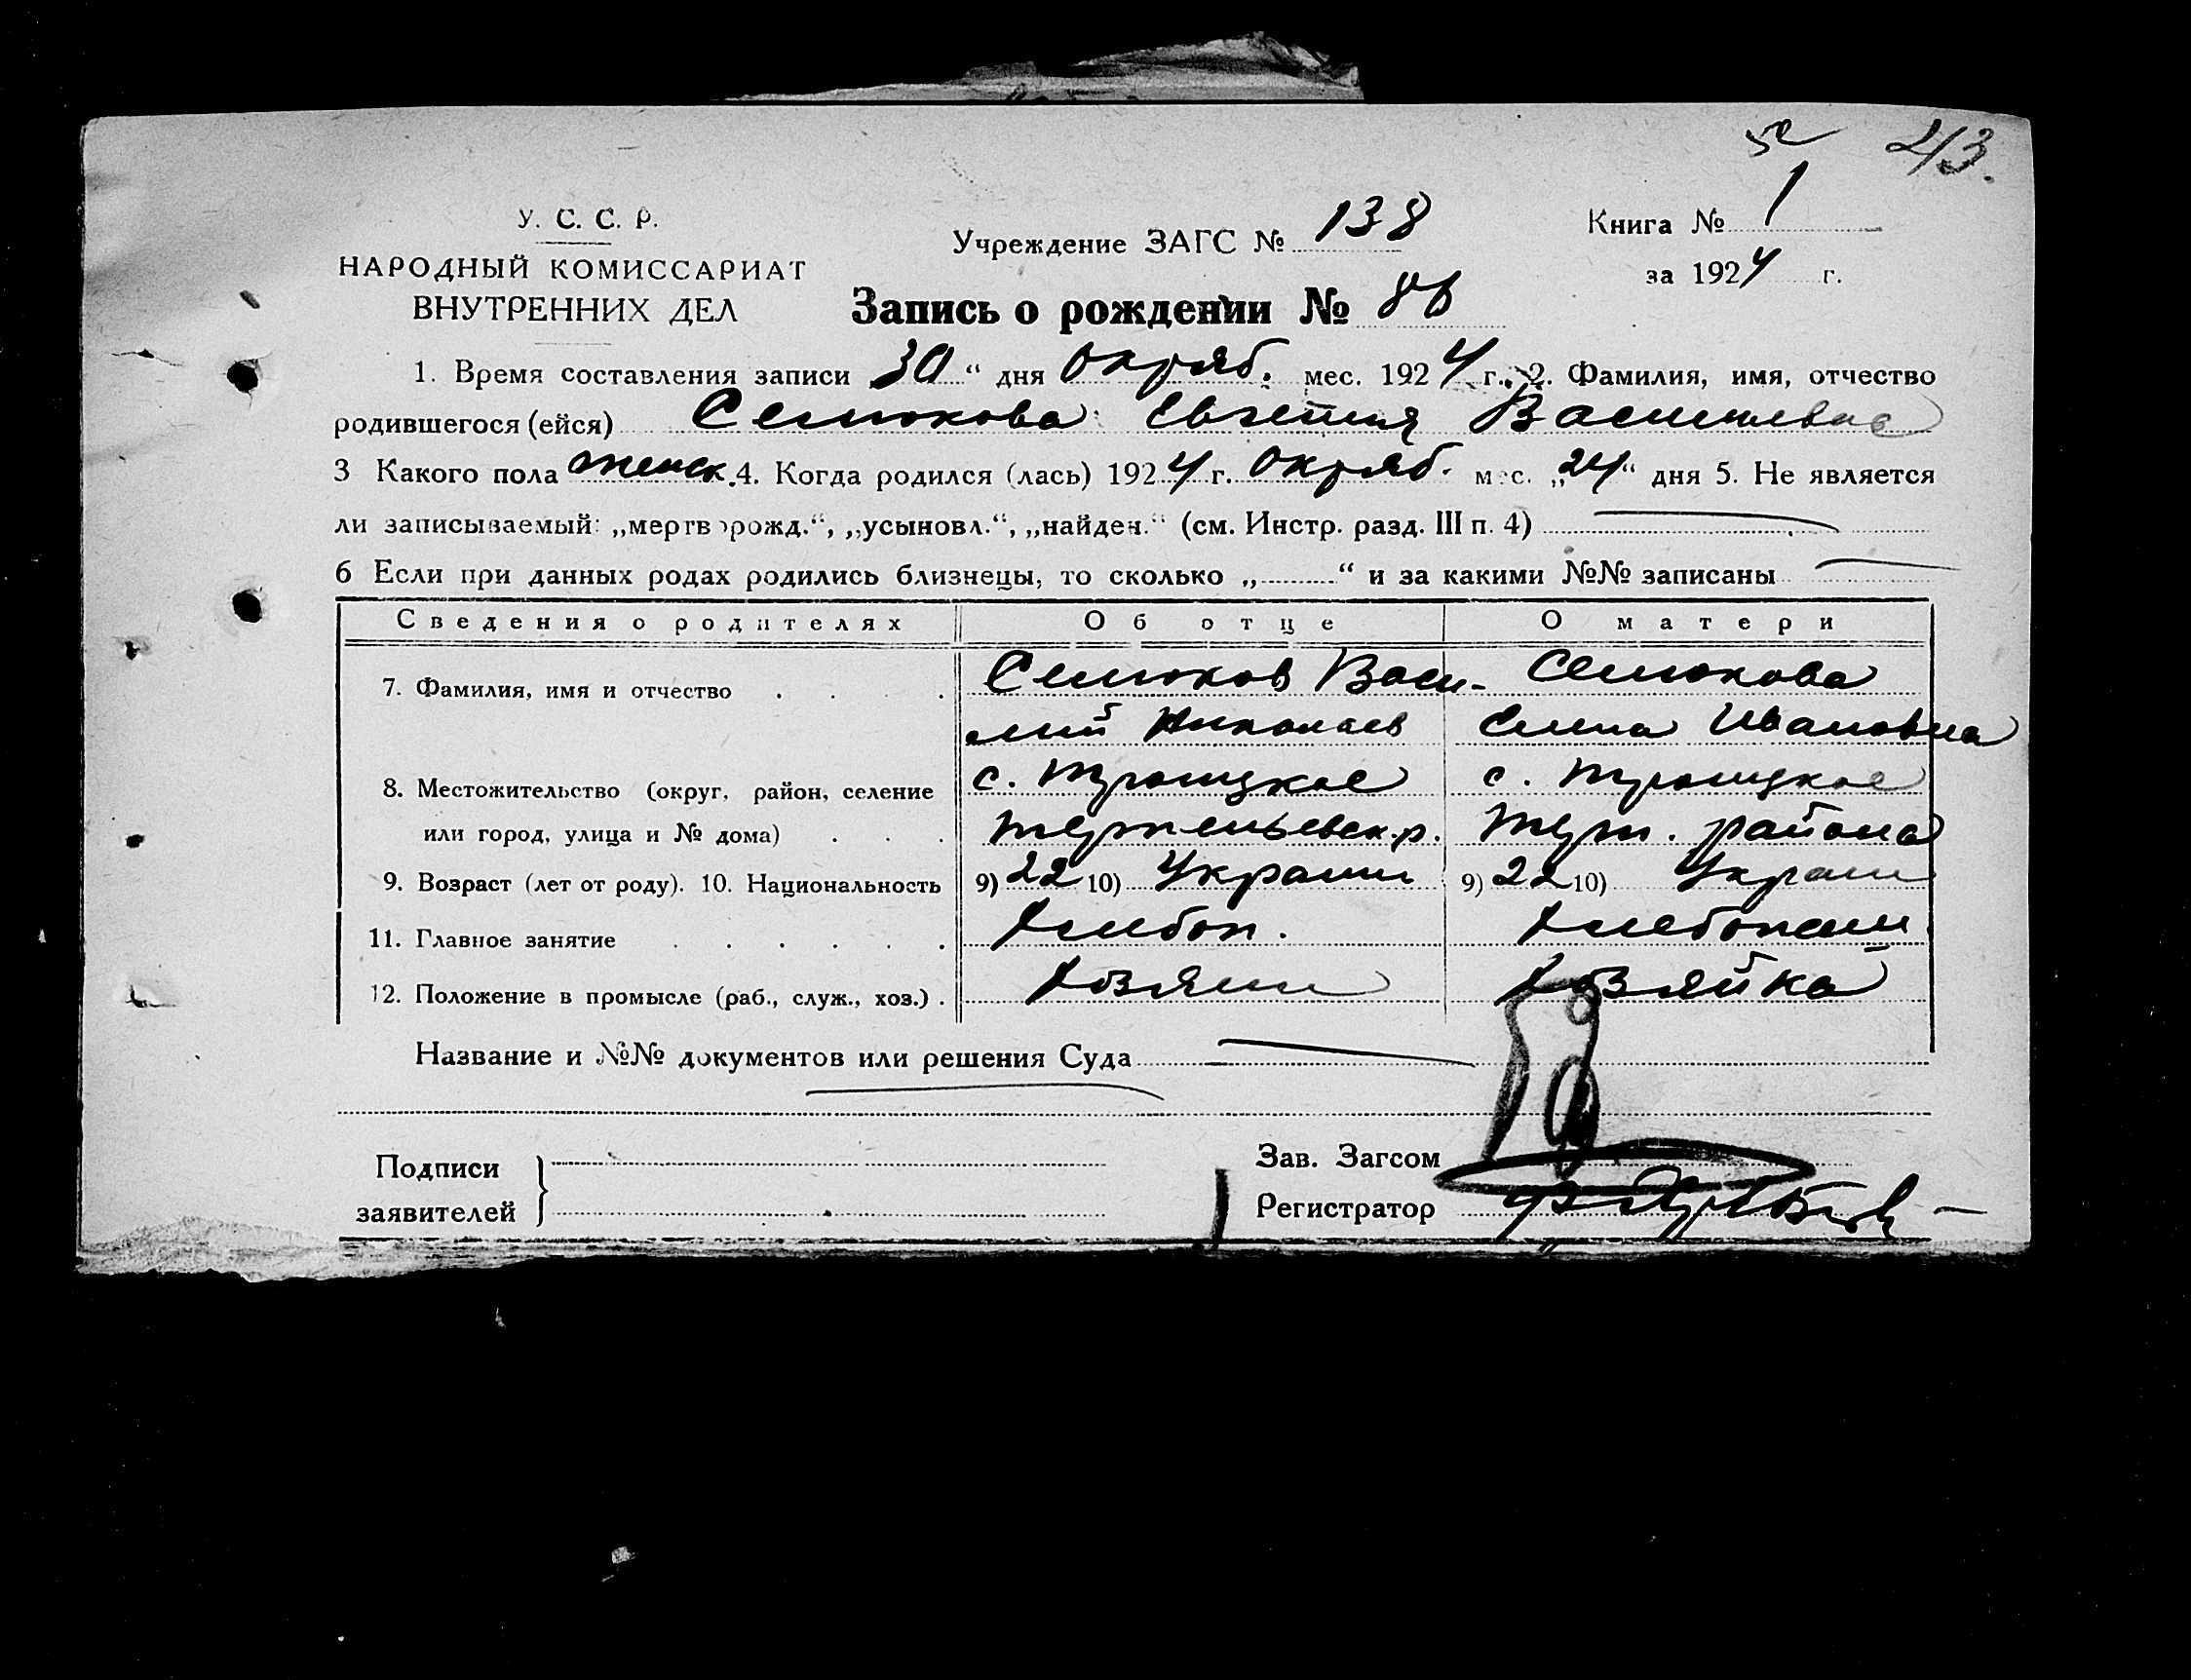 43.
У. С. С. Р.
НАРОДНЫЙ КОМИССАРИАТ
ВНУТРЕННИХ ДЕЛ
Учреждение ЗАГС № 138
Книга № 1
за 1924 г.
Запись о рождении № 86
1. Время составления записи 30" дня Октяб. мес. 1924 г. 2. Фамилия, имя, отчество
родившегося (ейся) Селюкова Евгения Васильевна
3 Какого пола женск. 4. Когда родился (лась) 1924 г. Октяб. мес. „24" дня 5. Не является
ли записываемый: „мертворожд.", „усыновл.", „найден." (см. Инстр. разд. III п. 4)
6 Если при данных родах родились близнецы, то сколько „ " и за какими №№ записаны
Сведения о родителях Об отце О матери
7. Фамилия, имя и отчество Селюков Васи- Селюкова
лий Николаев Елена Ивановна
8. Местожительство (округ, район, селение с. Троицкое с. Троицкое
или город, улица и № дома) Терпеньевск. р. Терп. района
9. Возраст (лет от роду). 10. Национальность 9) 22 10) Украин 9) 22 10) Украин
11. Главное занятие Хлебоп. Хлебопаш.
12. Положение в промысле (раб., служ., хоз.) Хозяин Хозяйка
Название и №№ документов или решения Суда
Подписи
заявителей
Зав. Загсом
Регистратор